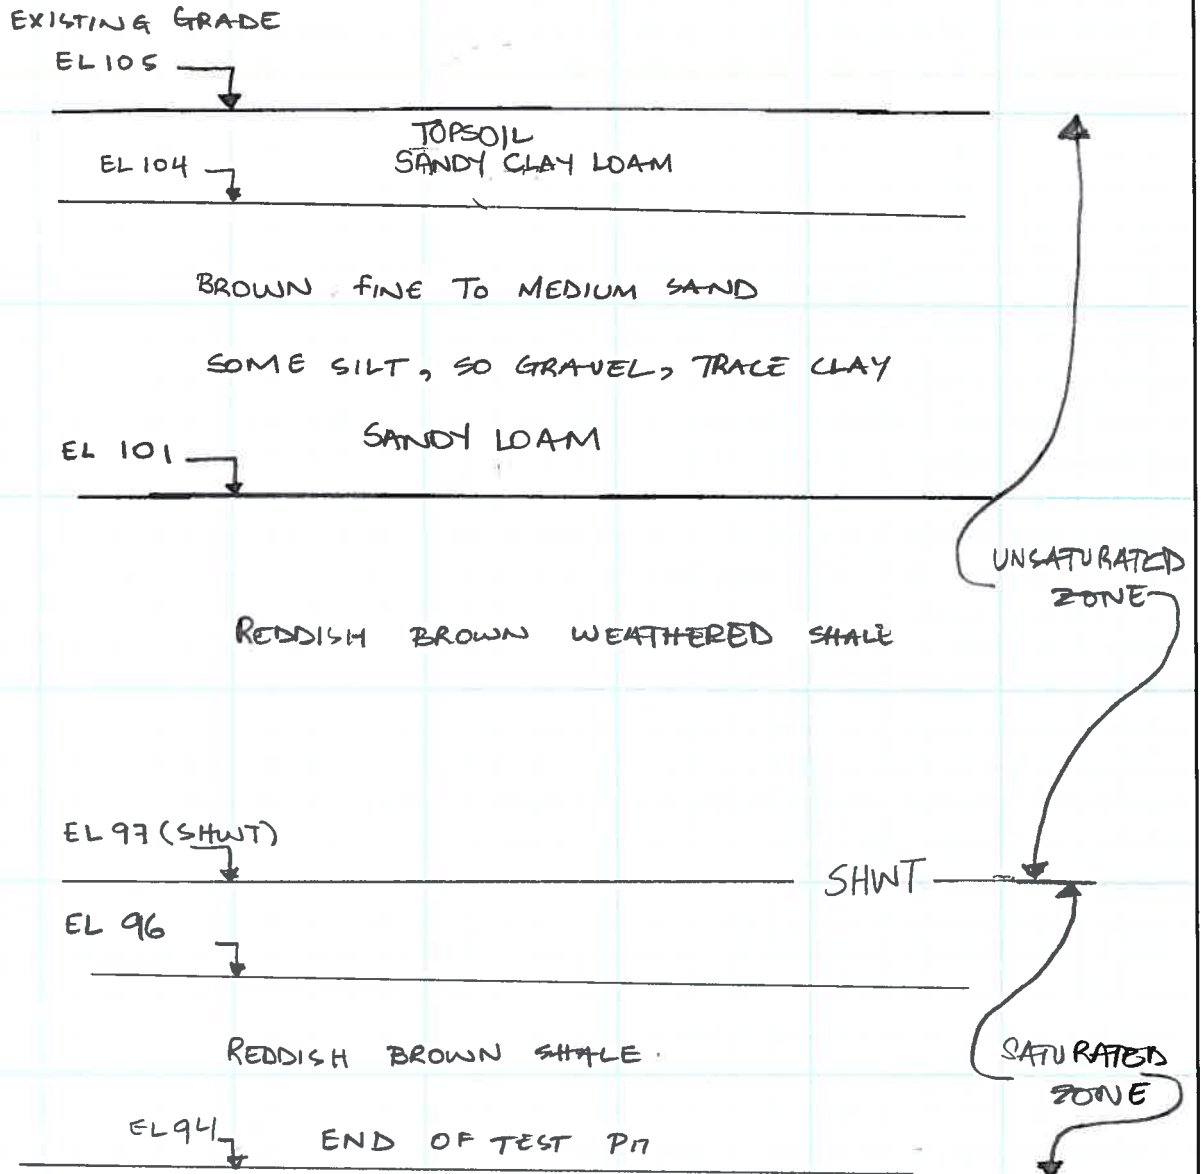 EXISTING GRADE
EL 105
TOPSOIL
EL 104
SANDY CLAY LOAM
BROWN FINE TO MEDIUM SAND
SOME SILT, SO GRAVEL, TRACE CLAY
SANDY LOAM
EL 101
UNSATURATED
ZONE
REDDISH BROWN WEATHERED SHALE
EL 97 (SHWT)
SHWT
EL 96
REDDISH BROWN SHALE.
SATURATED
ZONE
EL 94
END OF TEST PIT